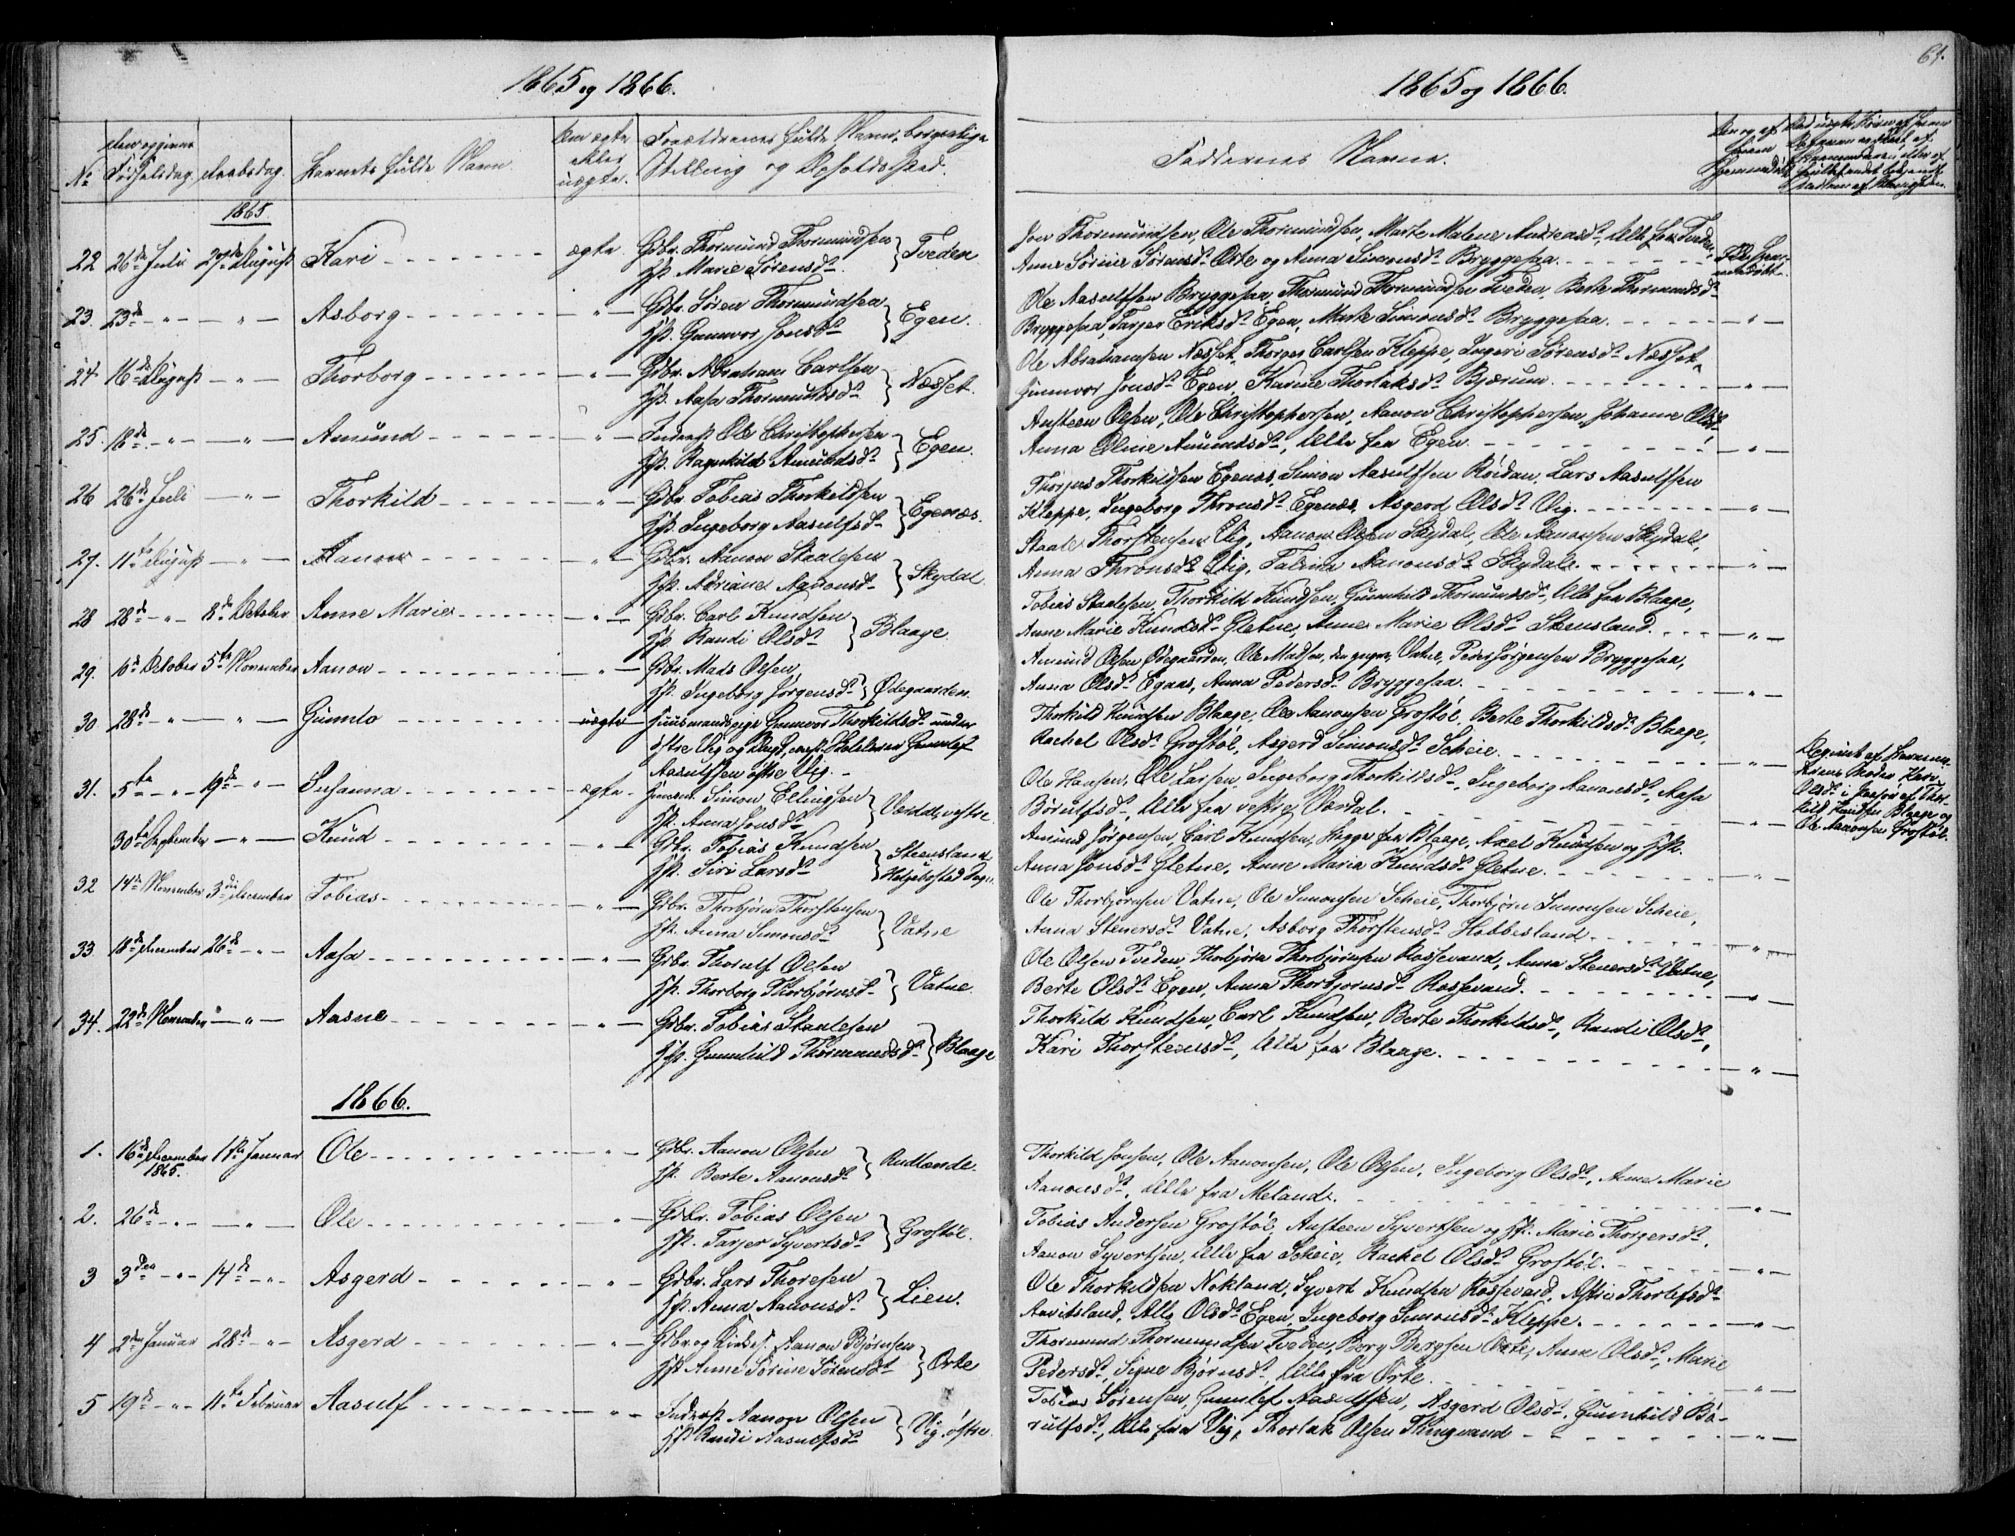 61.
1865 og 1866.
1865 og 1866.
No
den opgivne Fødselsdag.
Daabsdag.
Barnets fulde Navn
om ægte eller uægte.
Forældrenes fulde Navn, borgerlige
Stilling og Opholdssted.
Faddernes Navne.
1865
22 26de Juli 27de August Kari ægte Gdbr. Thormund Thormundsen
Hst. Marie Sørensd. } Tveden
Jon Thormundsen, Ole Thormundsen, Marte Malene Andreasd., Alle fra Tveden,
Anne Sørine Sørensd. Orte og Anna Simonsd. Bryggesaa.
23. 23de - " - - " - Asborg - " - Gdbr. Søren Thormundsen
Hst. Gunvor Jonsd. } Egen.
Ole Aasulfsen Bryggesaa, Thormund Thormundsen Tveden, Berte Thormundsd.
Bryggesaa, Tarjer Eriksd. Egen, Marte Simonsd. Bryggesaa. - " -
24. 16de August - " - Thorborg - " - Gdbr. Abraham Carlsen
Hst. Aasa Thormundsd. } Næsset.
Ole Abrahamsen Næsset, Thorger Carlsen Kleppe, Ingeri Sørensd. Næsset,
Gunvor Jonsd. Egen, Karine Thorlaksd. Bjærum. - " -
25. 18de - " - - " - Amund - " - Inderst Ole Christophersen
Hst. Ragnhild Amundsd. } Egen.
Austeen Olsen, Ole Christophersen, Aanon Christophersen, Johanne Olsd.,
Anna Oline Amundsd., Alle fra Egen. - " -
26 26de Juli - " - Thorkild - " - Gdbr. Tobias Thorkildsen
Hst. Ingeborg Aasulfsd. } Egenæs.
Thorjus Thorkildsen Egenæs, Simon Aasulfsen Røidan, Lars Aasulfsen
Kleppe, Ingeborg Thronsd. Egenæs, Asgerd Olsd. Vig. - " -
27. 11te August - " - Aanon - " - Gdbr. Aanon Staalesen
Hst. Adriane Aanonsd. } Skydal.
Staale Thorstensen Vig, Aanon Olsen Skydal, Ole Aanonsen Skydal,
Anna Thronsd. Vig, Talina Aanonsd. Skydal. - " -
28 28de - " - 8de October Anne Marie - " - Gdbr. Carl Knudsen
Hst. Randi Olsd. } Blaage.
Tobias Staalesen, Thorkild Knudsen, Gunhild Thormundsd., Alle fra Blaage,
Anne Marie Knudsd. Gletne, Anne Marie Olsd. Steensland. - " -
29. 6te October 5te November Aanon - " - Gdbr. Mads Olsen,
Hst. Ingeborg Jørgensd. } Ødegaarden.
Amund Olsen Ødegaarden, Ole Madsen, den yngre, Vatne, Peder Jørgensen Bryggesaa,
Anna Olsd. Egaas, Anna Pedersd. Bryggesaa. - " -
30 28de - " - - " - Gunnlo uægte Huusmandspige Gunvor Thorkildsd. under
østre Vig og Gunlef
Aasulfsen østre Vig.
Thorkild Knudsen Blaage, Ole Aanonsen Grostøl, Berte Thorkildsd. Blaage,
Rachel Olsd. Grostøl, Asgerd Simonsd. Scheie. - " -
Olsd. i Thorkild Knudsen Blaage og
Ole Aanonsen Grostøl.
31. 5te - " - 19de - " - Susanna ægte Simon Ellingsen
Hst. Anna Jonsd. } Vordal, vestre.
Ole Hansen, Ole Larsen, Ingeborg Thorkildsd., Ingeborg Aanonsd., Aasa
Børulfsd., Alle fra vestre Vordal. - " -
30te September - " - Knud - " - Gdbr. Tobias Knudsen
Hst. Siri Larsd. } Steensland, Helgebostad Sogn
Amund Jørgensen, Carl Knudsen, begge fra Blaage, Axel Knudsen og Hst.
Anna Jonsd. Gletne, Anne Maria Knudsd. Gletne. - " -
32 14de November 3die December Tobias - " - Gdbr. Thorbjørn Thorstensen
Hst. Anna Simonsd. } Vatne
Ole Thorbjørnsen Vatne, Ole Simonsen Scheie, Thorbjørn Simonsen Scheie,
Anna Stenersd. Vatne, Asborg Thorstensd. Hobbesland. - " -
33 18de December 26de - " - Aasa - " - Gdbr. Thorulf Olsen
Hst. Thorborg Thorbjørnsd. } Vatne.
Ole Olsen Tveden, Thorbjørn Thorbjørnsen Rossevand, Anna Stenersd. Vatne,
Berte Olsd. Egen, Anna Thorbjørnsd. Rossevand. - " -
34. 22de November - " - Aasne - " - Gdbr. Tobias Staalesen
Hst. Gunhild Thormundsd. } Blaage
Thorkild Knudsen, Carl Knudsen, Berte Thorkildsd., Randi Olsd.,
Kari Thorstensd., Alle fra Blaage. - " -
1866.
1. 16de December 1865. 1ste Januar Ole - " - Gdbr. Aanon Olsen
Hst. Berte Aanonsd. } Rudlande.
Thorkild Jonsen, Ole Aanonsen, Ole Olsen, Ingeborg Olsd., Anne Marie
Aanonsd., Alle fra Meland. - " -
2. 26de - " - - " - Ole - " - Gdbr. Tobias Olsen
Hst. Tarjer Syvertsd. } Grostøl.
Tobias Andersen Grostøl, Austeen Syvertsen og Hst. Marie Thorgersd.,
Aanon Syvertsen, Alle fra Scheie, Rachel Olsd. Grostøl. - " -
3 3die - " - 14de - " - Asgerd - " - Gdbr. Lars Thoresen
Hst. Anna Aanonsd. } Lien.
Ole Thorkildsen Nokland, Syvert Knudsen Rossevand, Astri Thorlefsd.
Aavitsland, Alle Olsd. Egen, Ingeborg Simonsd. Kleppe. - " -
4 2den Januar 28de - " - Asgerd - " - Gdbr. og Aanon Bjørnsen
Hst. Anne Sørine Sørensd. } Orte
Thormund Thormundsen Tveden, Berg Bergsen Orte, Anne Olsd., Marie
Pedersd., Signe Bjørnsd., Alle fra Orte. - " -
5 19de - " - 11te Februar Aasulf - " - Inderst Aanon Olsen
Hst. Randi Aasulfsd. } Vig, østre.
Tobias Sørensen, Gunlef Aasulfsen, Asgerd Olsd., Gunhild Bø-
rulfsd., Alle fra Vig, Thorlak Olsen Thingvand - " -